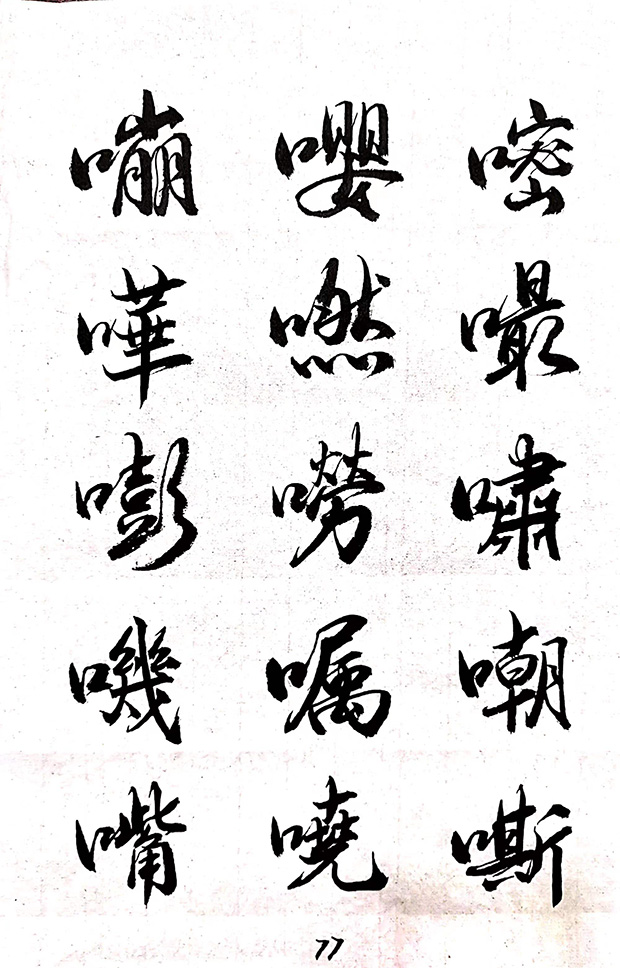 嘧嘬嘯嘲嘶
嚶嘫嘮嘱嘵
嘣嘩嘭嘰嘴
77